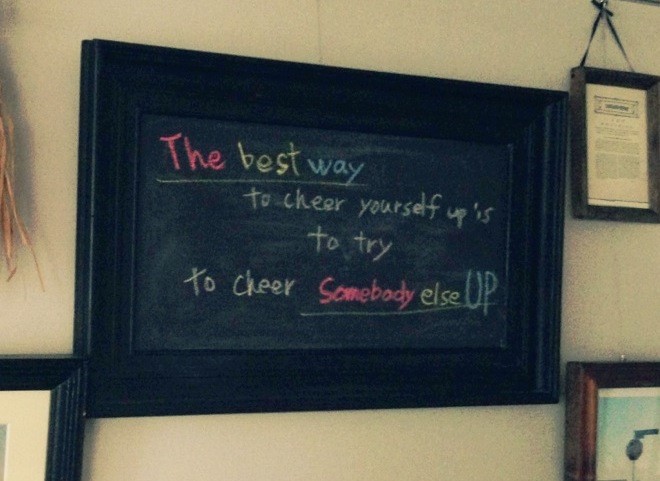 The best way
to cheer yourself up is
to try
to cheer Somebody else UP